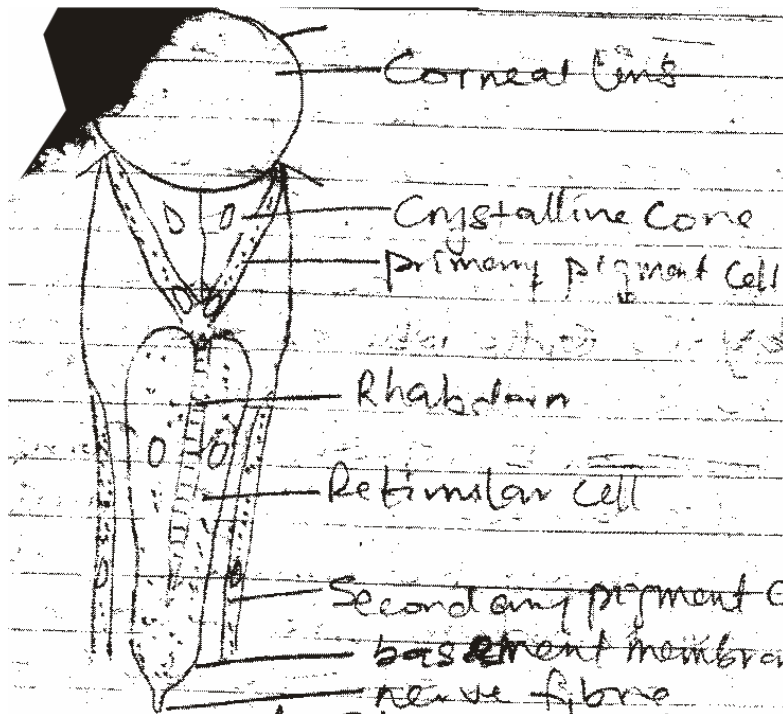 Corneal lens
Crystalline Cone
primary pigment cell
Rhabdom
Retinular cell
Secondary pigment C
basement membra
nerve fibre